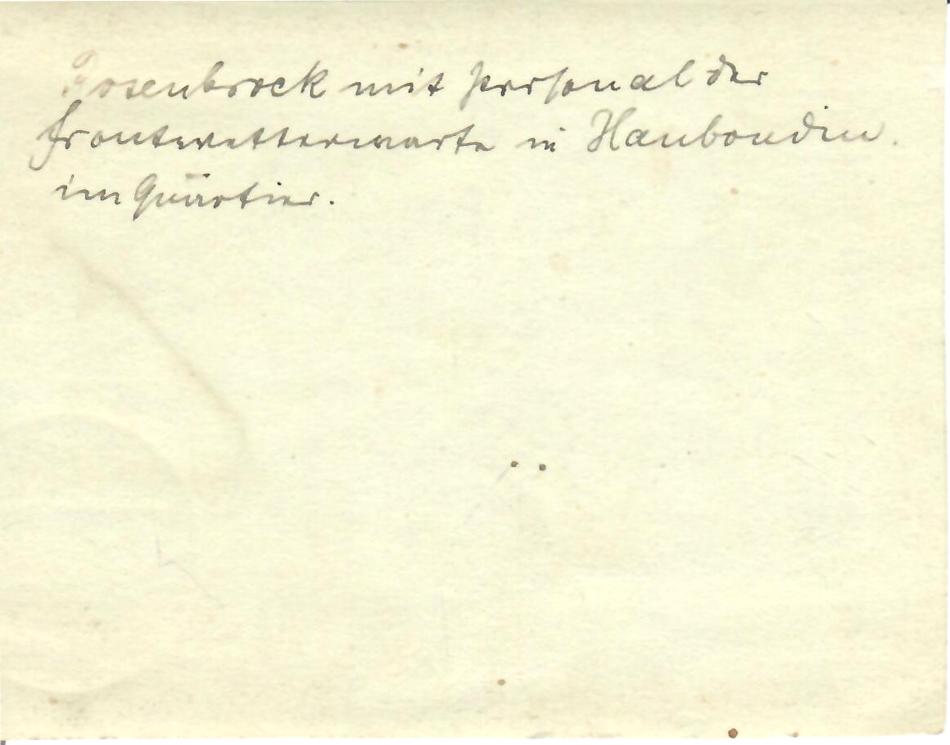 Rosenbrock mit Personal der
Frontwetterwarte in Haubourdin.
im Quartier.